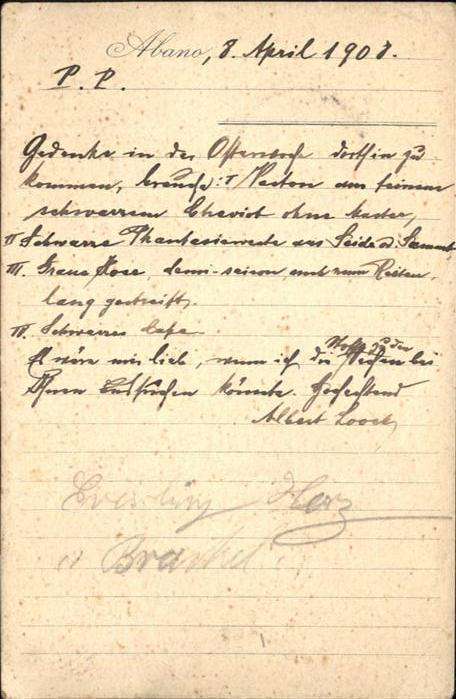 Abano, 8. April 1908.
P. P.
Gedenke in der Osterwoche dorthin zu
kommen, brauche: I Veston aus feinem
schwarzem Cheviot ohne Muster,
II Schwarze Phantasieweste aus Seide od. Sammt
III. Graue Hose, demi-saison, auch zum Reisen,
lang gestreift.
IV. Schwarzes Cape.
Es wäre mir lieb, wenn ich die Stoffe zu den Sachen bei
Ihnen aussuchen könnte. Hochachtend
Albert Loock
Herz